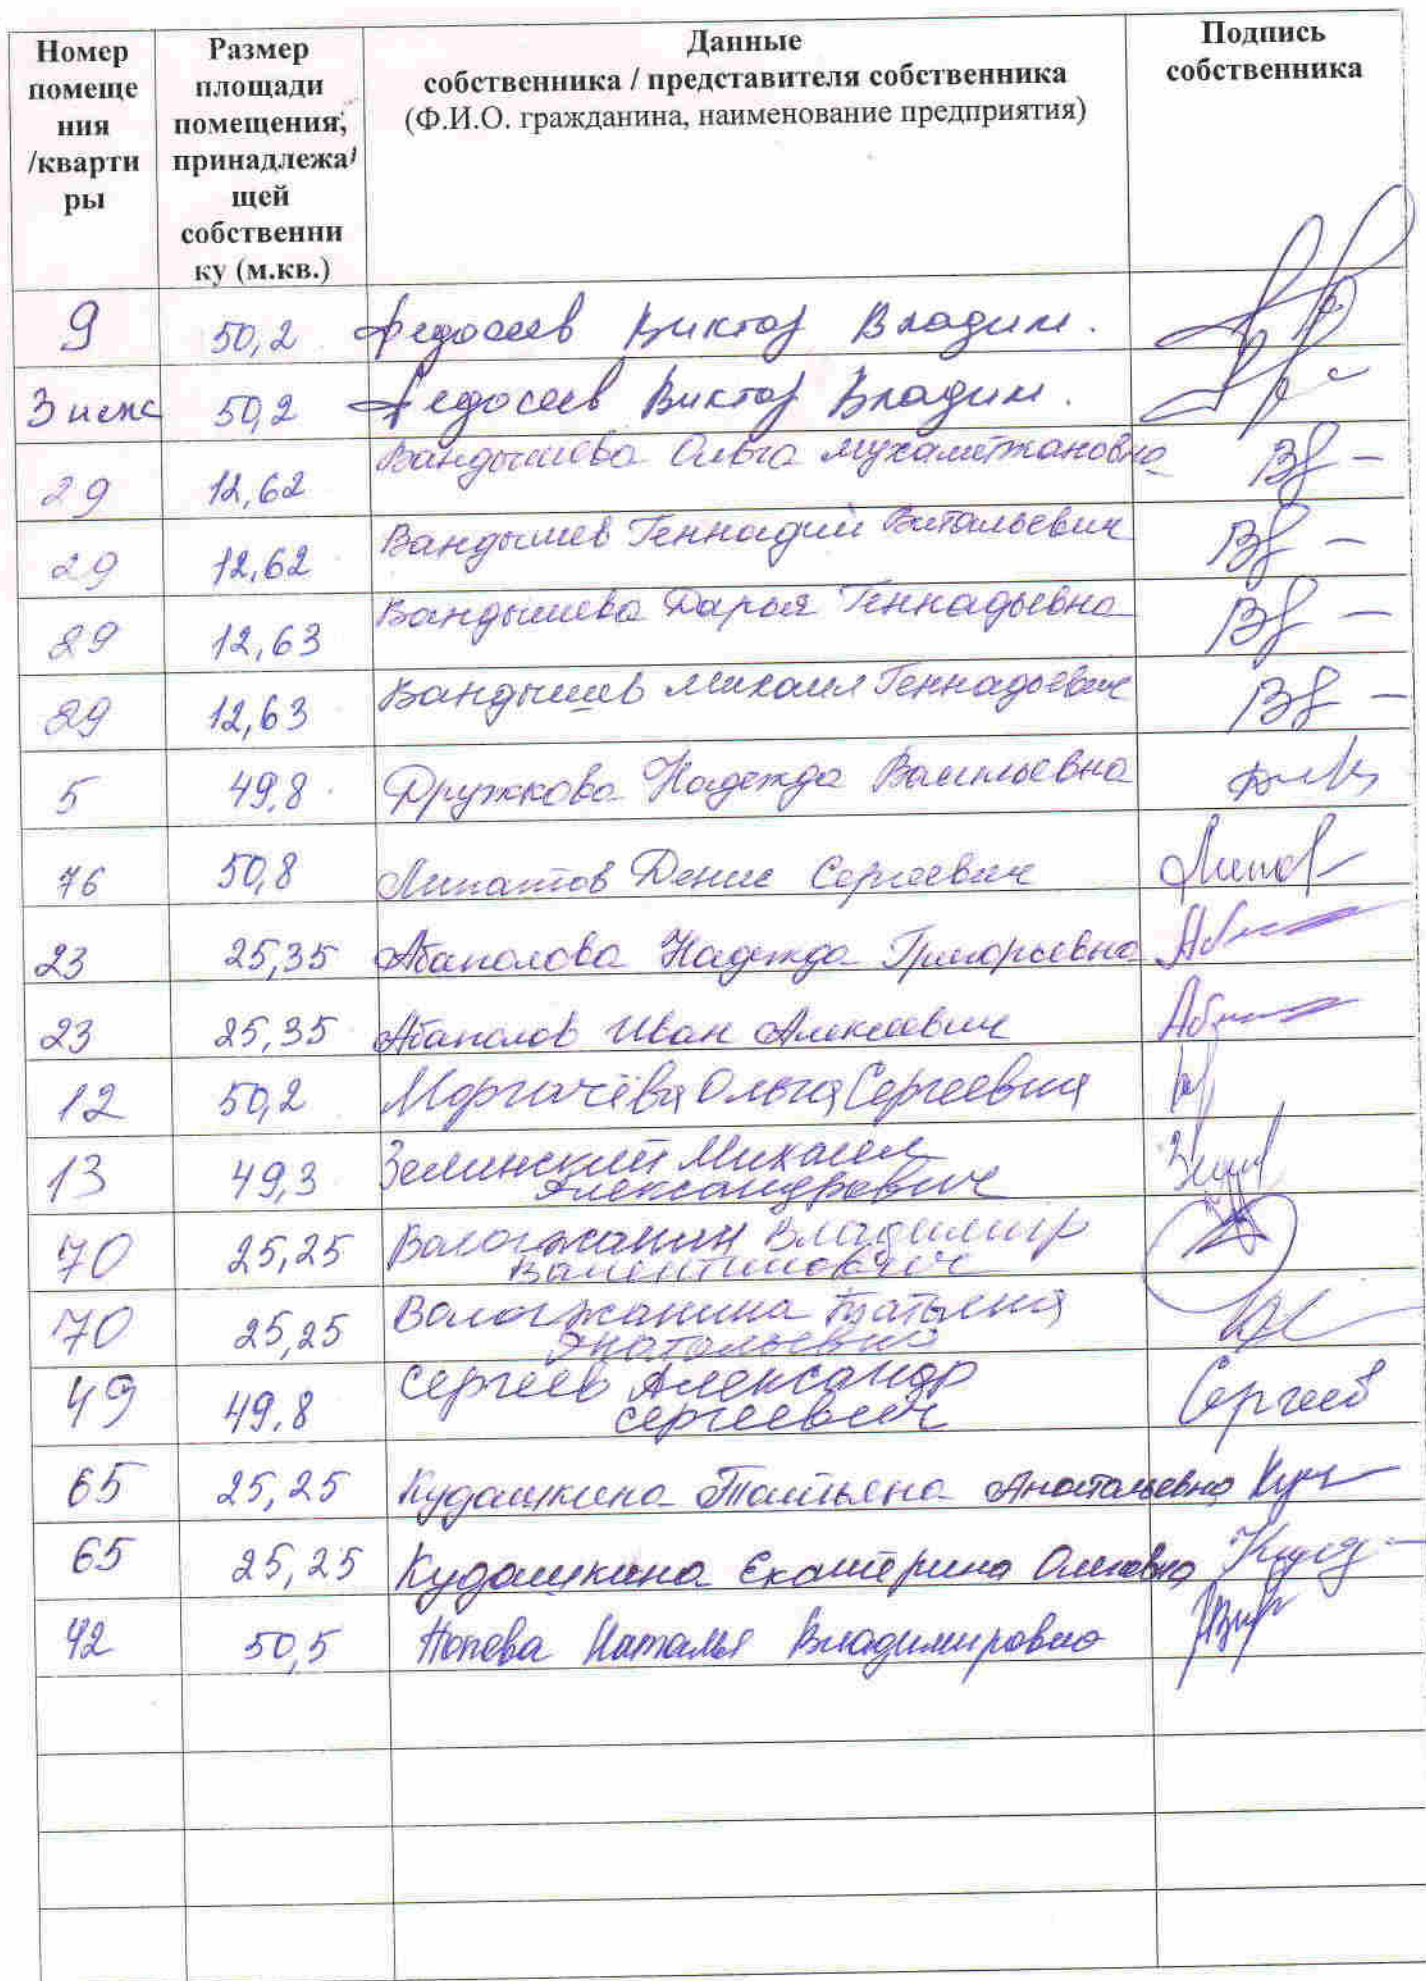 Номер
помеще
ния
/кварти
ры
Размер
площади
помещения,
принадлежа
щей
собственни
ку (м.кв.)
Данные
собственника / представителя собственника
(Ф.И.О. гражданина, наименование предприятия)
Подпись
собственника
9 50,2 Федосеев Виктор Владим.
3 50,2 Федосеев Виктор Владим.
29 12,62 Вандышева Ольга Мухаметжановна
29 12,62 Вандышев Геннадий Витальевич
29 12,63 Вандышева Дарья Геннадьевна
29 12,63 Вандышев Михаил Геннадьевич
5 49,8 Дружкова Надежда Васильевна
76 50,8 Липатов Денис Сергеевич
23 25,35 Абаполова Надежда Григорьевна
23 25,35 Абаполов Иван Алексеевич
12 50,2 Моргачёва Ольга Сергеевна
13 49,3 Зелинский Михаил
Александрович
70 25,25 Вологжанин Владимир
Валентинович
70 25,25 Вологжанина Татьяна
Анатольевна
49 49,8 Сергеев Александр
Сергеевич Сергеев
65 25,25 Кудашкина Татьяна Анатольевна
65 25,25 Кудашкина Екатерина Олеговна
42 50,5 Попова Наталья Владимировна